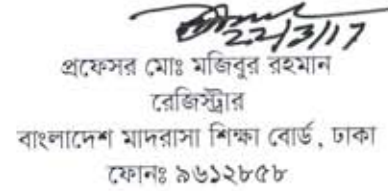 22/3/17
প্রফেসর মোঃ মজিবুর রহমান
রেজিস্ট্রার
বাংলাদেশ মাদরাসা শিক্ষা বোর্ড, ঢাকা
ফোনঃ ৯৬১২৮৫৮